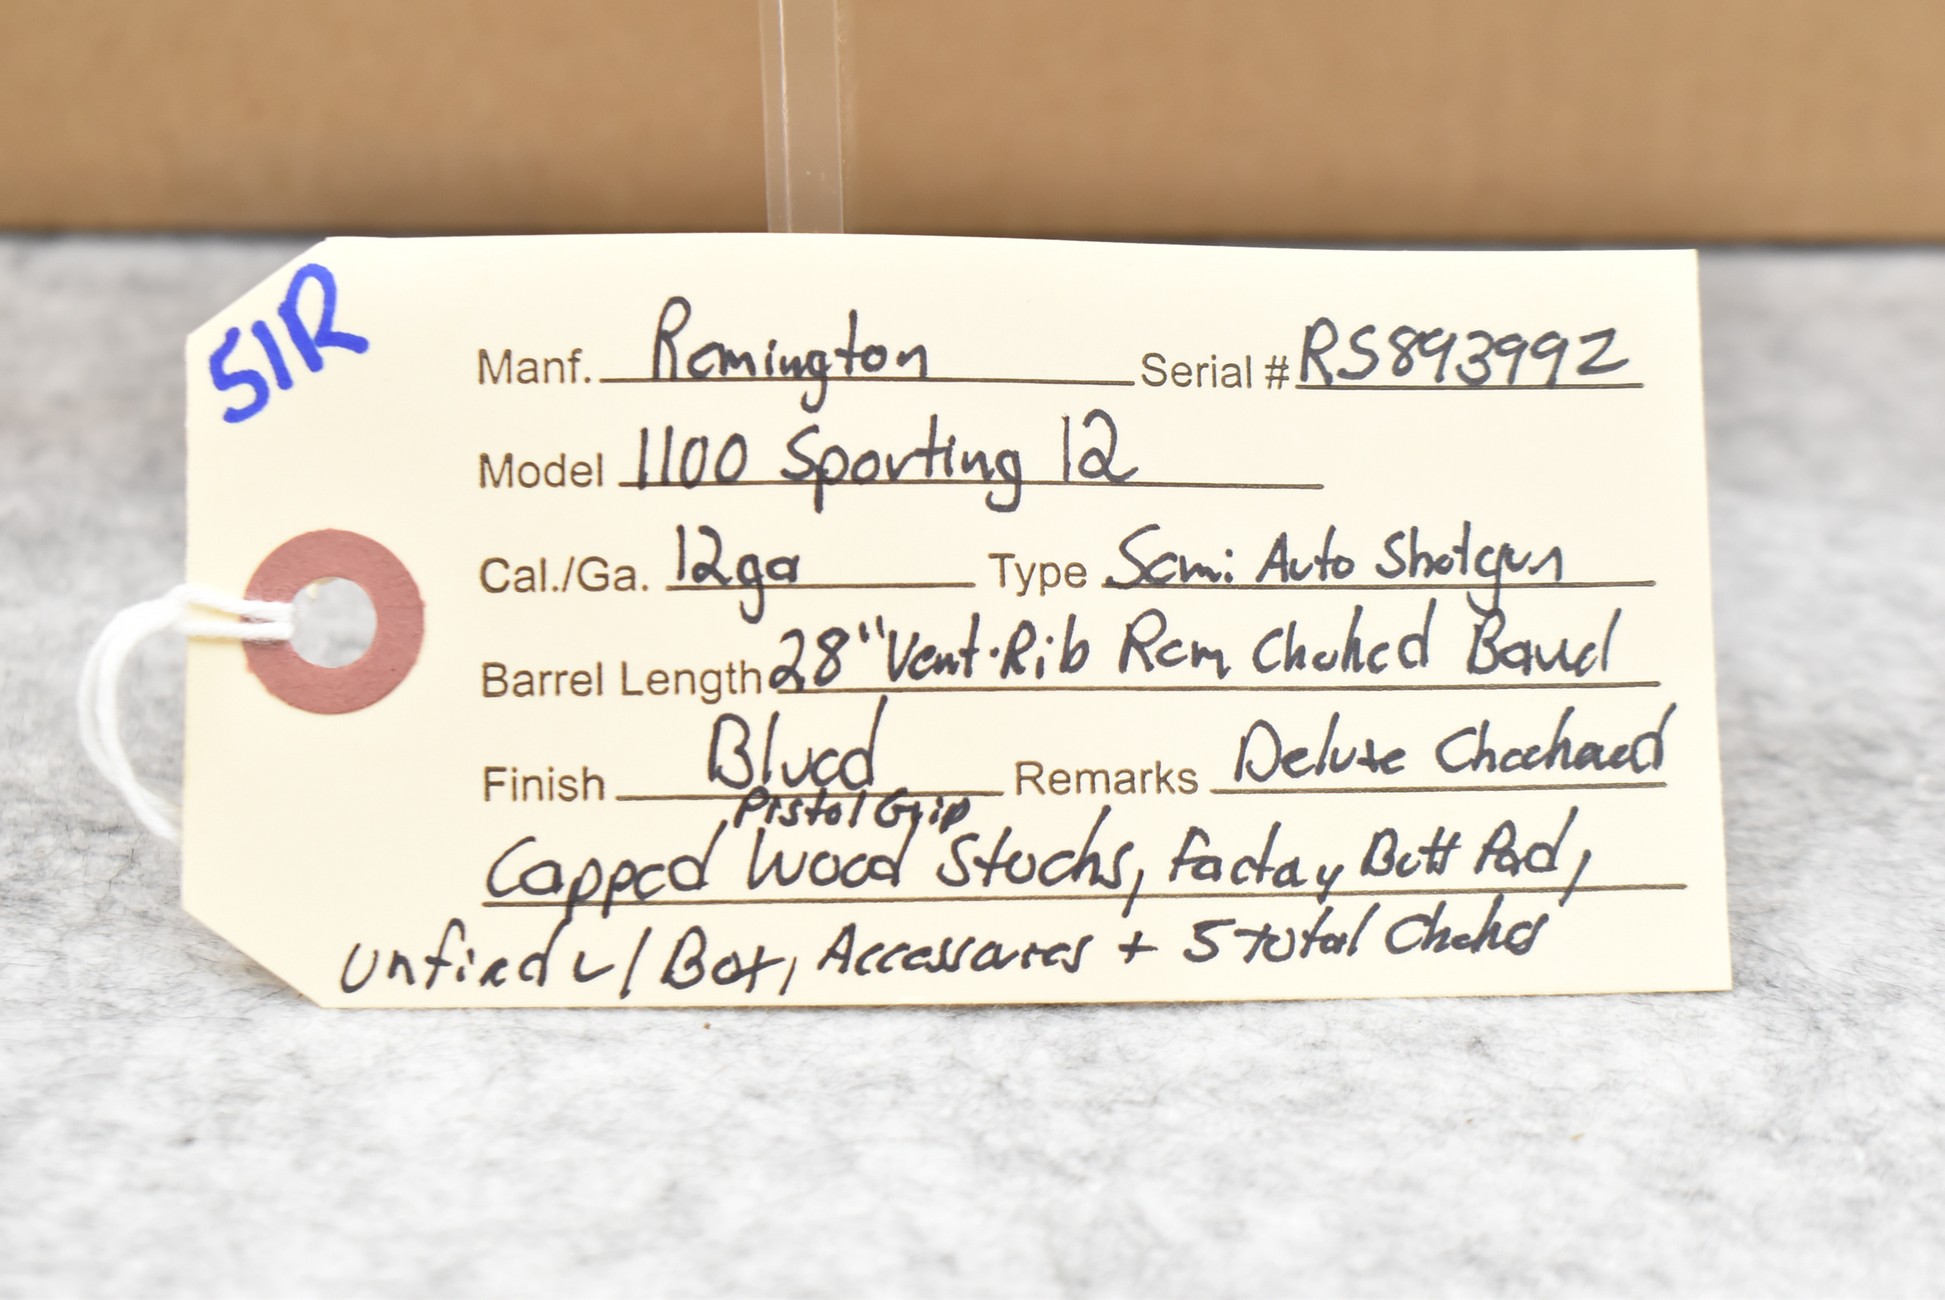 51R
Manf. Remington Serial # RS89399Z
Model 1100 Sporting 12
Cal./Ga. 12ga Type Semi Auto Shotgun
Barrel Length 28" Vent-Rib Rem Choked Barrel
Finish Blued Remarks Deluxe Checkered
Pistol Grip
Capped Wood Stocks, Factory Butt Pad,
Unfired w/ Box, Accessories + 5 total Chokes